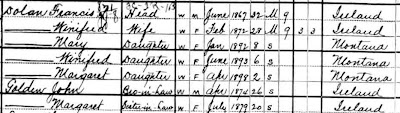 Dolan Francis Head W M June 1867 32 M 9 Ireland
— Winifred Wife W F Feb 1872 28 M 9 3 3 Ireland
— Mary Daughter W F Jan 1892 8 S Montana
— Winifred Daughter W F June 1893 6 S Montana
— Margaret Daughter W F Apr 1898 2 S Montana
Golden John Bro-in-Law W M Apr 1874 26 S Ireland
— Margaret Sister-in-Law W F July 1879 20 S Ireland